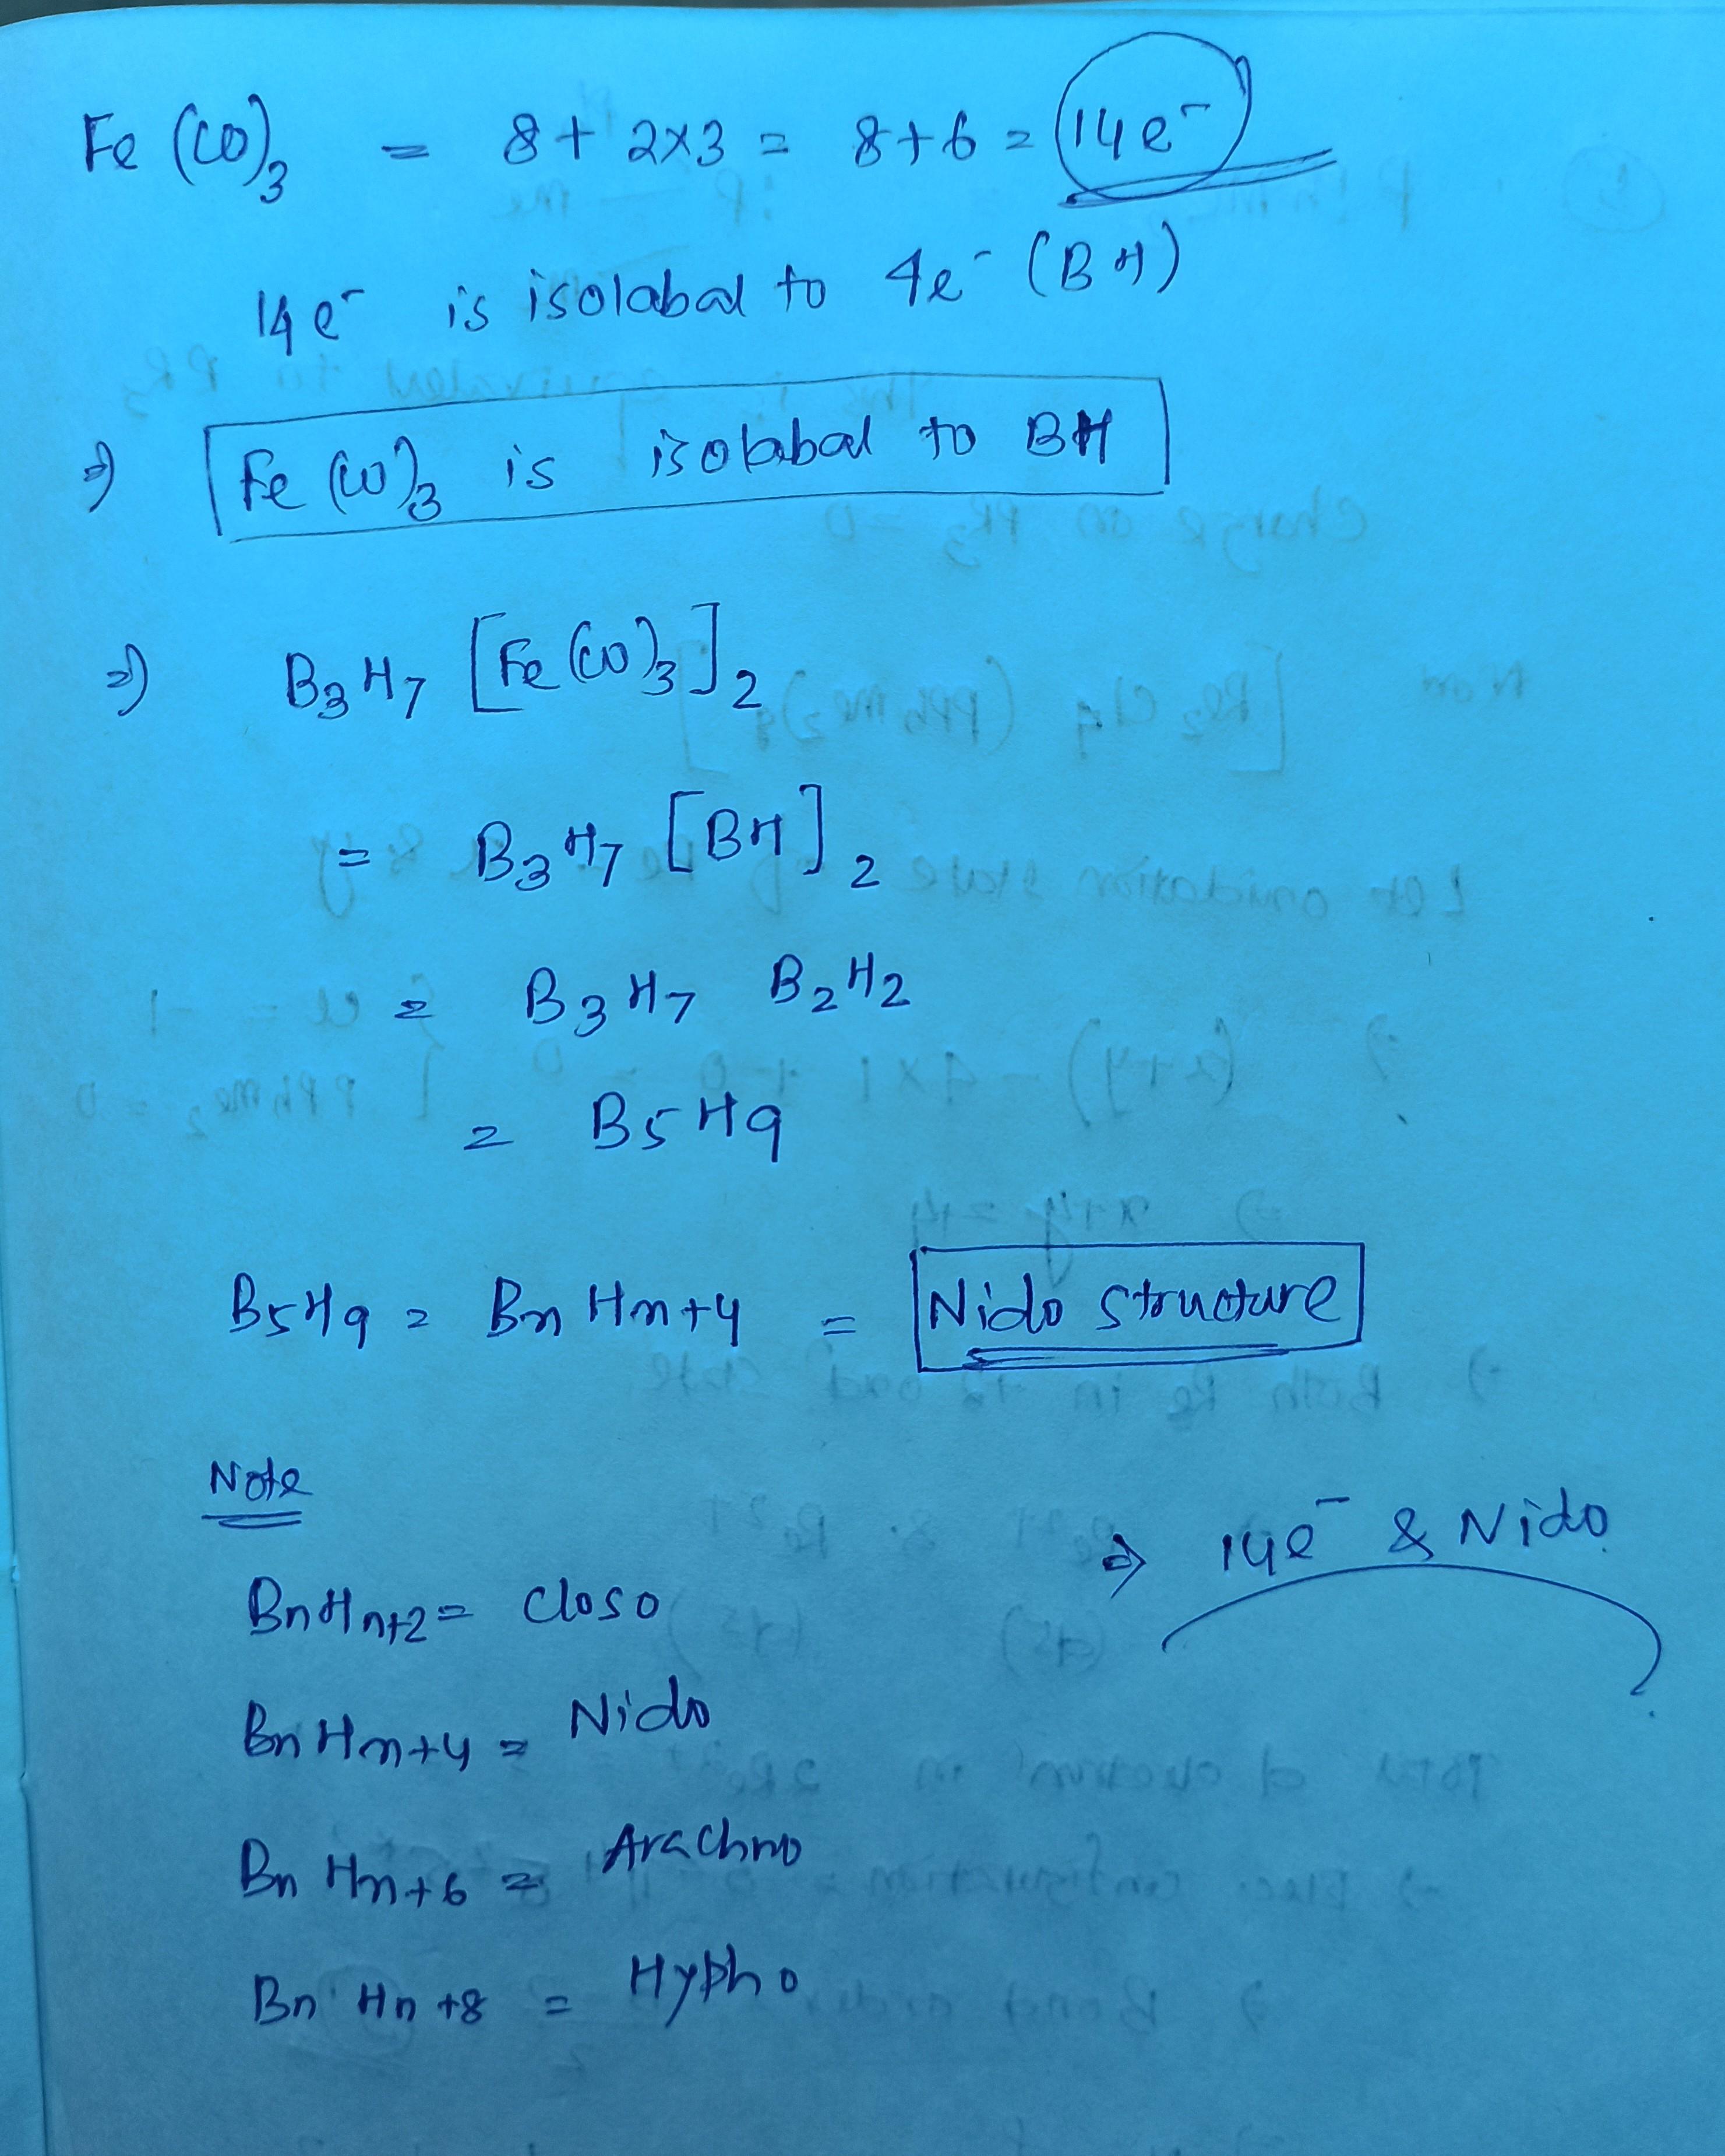 Fe (CO)3 = 8 + 2x3 = 8+6 = 14e-
14 e- is isolabal to 4e- (BH)
⇒ Fe (CO)3 is isolabal to BH
⇒ B3 H7 [Fe (CO)3]2
= B3 H7 [BH]2
= B3 H7 B2 H2
= B5 H9
B5H9 = Bn Hn+4 = Nido structure
Note
⇒ 14e- & Nido
BnHn+2 = Closo
Bn Hn+4 = Nido
Bn Hn+6 = Arachno
Bn Hn+8 = Hypho